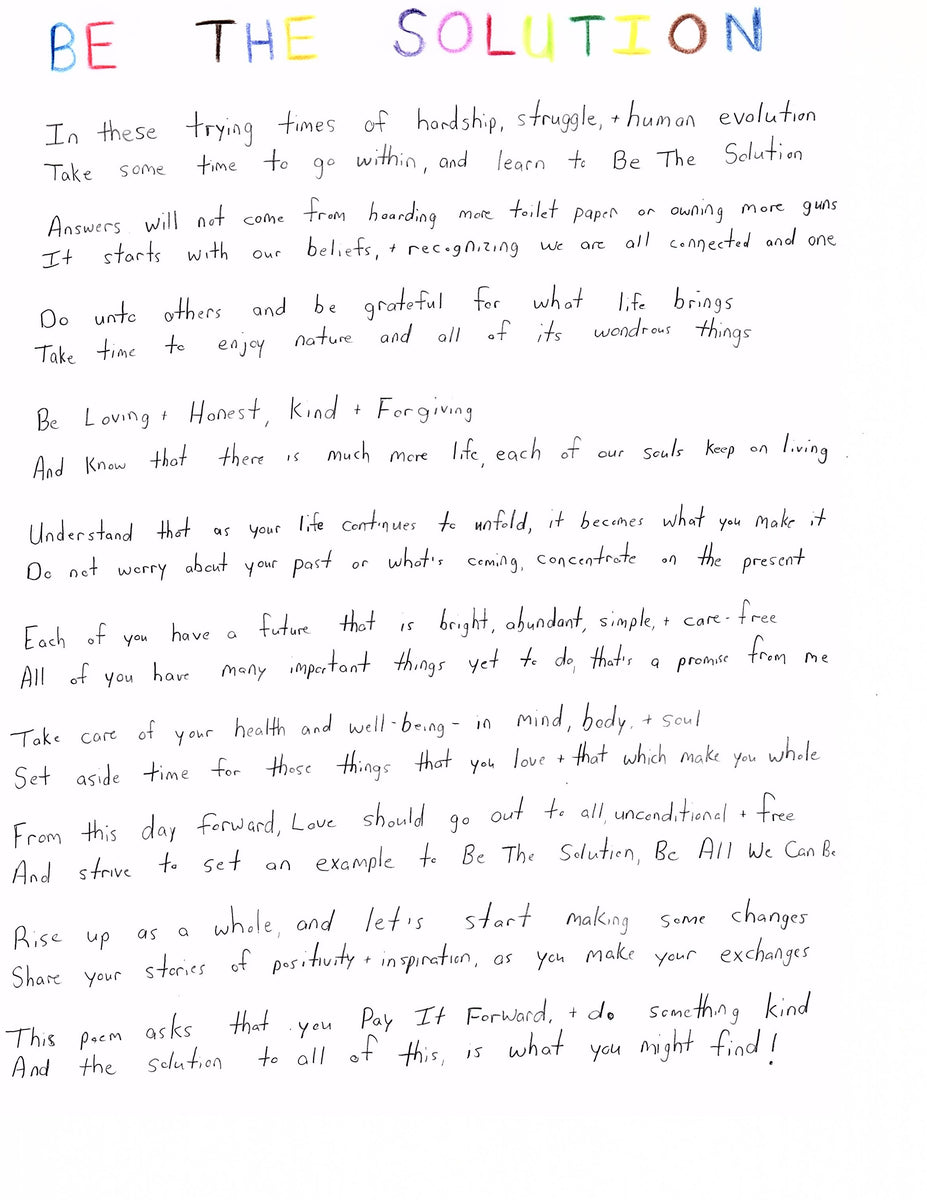 BE THE SOLUTION
In these trying times of hardship, struggle, + human evolution
Take some time to go within, and learn to Be The Solution
Answers will not come from hoarding more toilet paper or owning more guns
It starts with our beliefs, + recognizing we are all connected and one
Do unto others and be grateful for what life brings
Take time to enjoy nature and all of its wondrous things
Be Loving + Honest, Kind + Forgiving
And Know that there is much more life, each of our souls keep on living.
Understand that as your life continues to unfold, it becomes what you make it
Do not worry about your past or what's coming, concentrate on the present
Each of you have a future that is bright, abundant, simple, + care-free
All of you have many important things yet to do, that's a promise from me
Take care of your health and well-being - in mind, body, + soul
Set aside time for those things that you love + that which make you whole
From this day forward, Love should go out to all, unconditional + free
And strive to set an example to Be The Solution, Be All We Can Be
Rise up as a whole, and let's start making some changes
Share your stories of positivity + inspiration, as you make your exchanges
This poem asks that you Pay It Forward, + do something kind
And the solution to all of this, is what you might find!